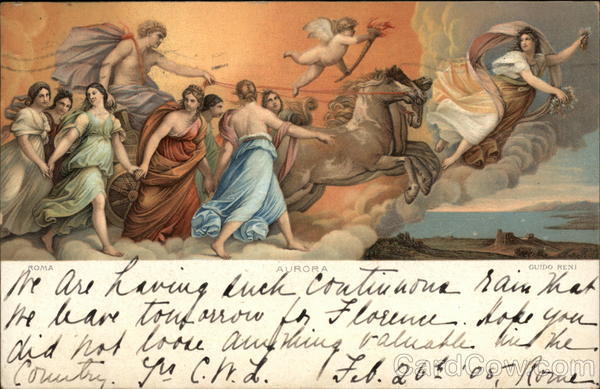 ROMA AURORA GUIDO RENI
We are having such continuous rain that
we leave tomorrow for Florence. Hope you
did not loose anything valuable in the
Country. Yrs C.W.L. Feb. 26 Rome
CardCow.com